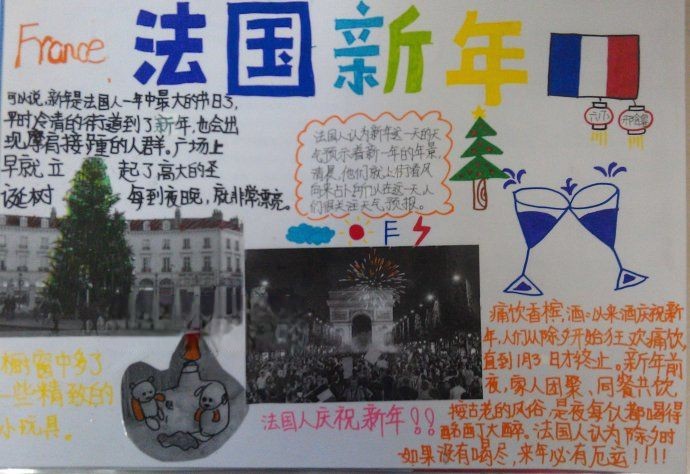 France
法国新年
可以说,新年是法国人一年中最大的节日了,
平时冷清的街道到了新年,也会出
现摩肩接踵的人群。广场上
早就立起了高大的圣
诞树 每到夜晚,就非常漂亮。
法国人认为新年这一天的天
气预示着新一年的年景,
清晨,他们就上街看风
向来占卜,所以在这一天,人
们很关注天气预报。
六小
橱窗中多了
一些精致的
小玩具。
法国人庆祝新年!!
痛饮香槟酒:以来酒庆祝新
年,人们从除夕开始狂欢痛饮,
直到1月3日才终止。新年前
夜,家人团聚,同餐共饮
按古老的风俗,是夜每以都喝得
酩酊大醉。法国人认为除夕时
如果没有喝尽,来年必有厄运!!!!